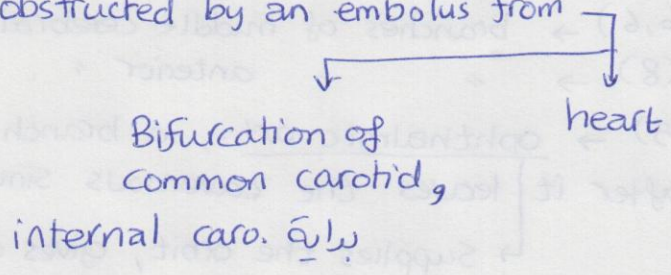 obstructed by an embolus from
Bifurcation of heart
common carotid,
internal caro. بداية